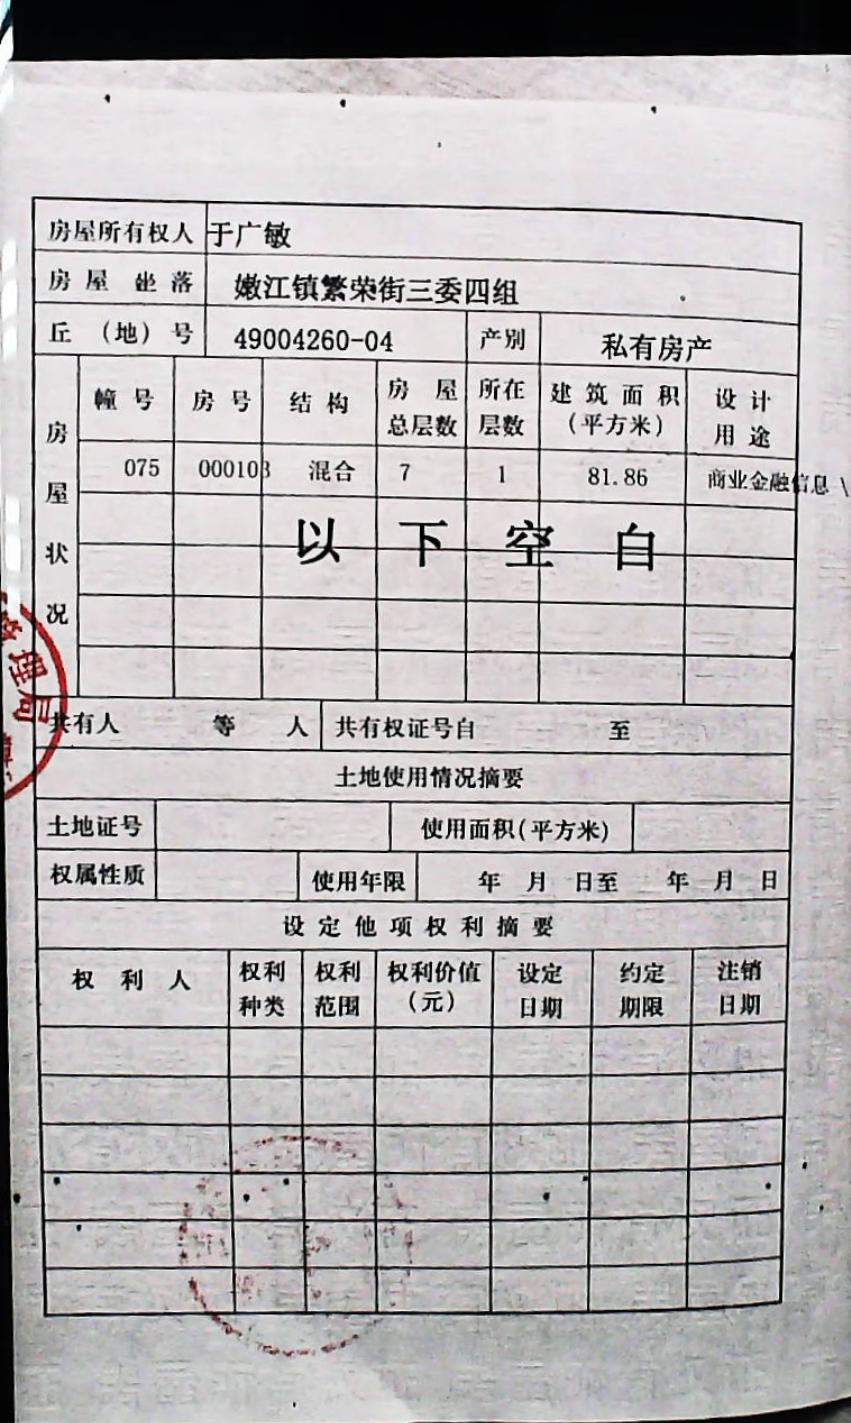 房屋所有权人 于广敏
房屋坐落 嫩江镇繁荣街三委四组
丘（地）号 49004260-04 产别 私有房产
房屋状况
幢号 房号 结构 房屋总层数 所在层数 建筑面积（平方米） 设计用途
075 000103 混合 7 1 81.86 商业金融信息
以下空白
共有人 等 人 共有权证号自 至
土地使用情况摘要
土地证号 使用面积(平方米)
权属性质 使用年限 年 月 日至 年 月 日
设定他项权利摘要
权利人 权利种类 权利范围 权利价值（元） 设定日期 约定期限 注销日期
理局